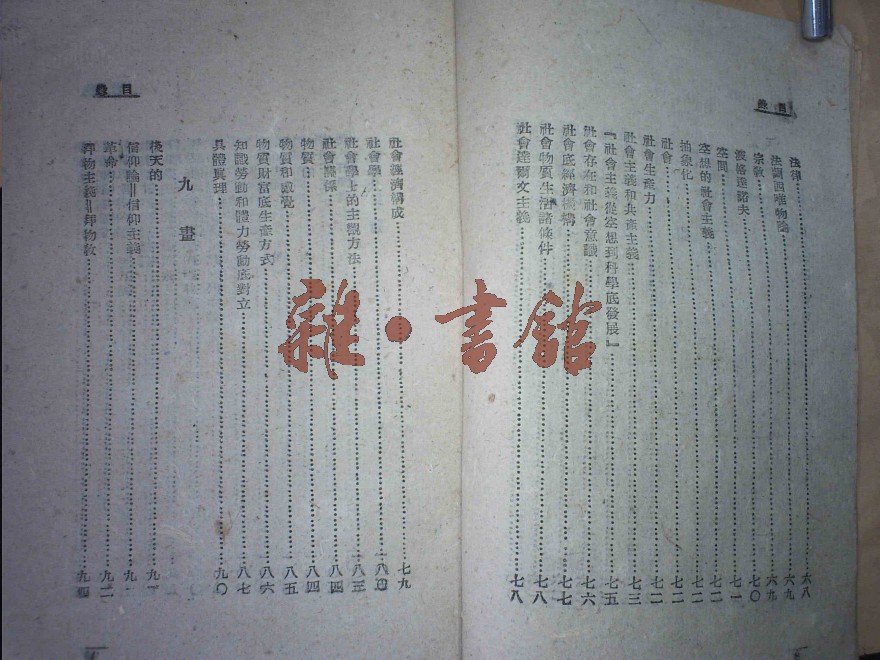 目錄
法律 六八
法蘭西唯物論 六九
宗教 七〇
波格達諾夫 七一
空間 七二
空想的社會主義 七二
抽象化 七二
社會 七二
社會生產力 七三
社會主義和共產主義
『社會主義從空想到科學底發展』 七五
社會存在和社會意識 七六
社會底經濟構構 七七
社會物質生活諸條件 七八
社會達爾文主義 七八
目錄
社會經濟構成 七九
社會學
社會學上的主觀方法 八三
社會關係 八四
物質 八四
物質和感覺 八五
物質財富底生產方式 八六
知識勞動和體力勞動底對立 八七
具體真理 九〇
九畫
後天的 九一
信仰論=信仰主義 九一
革命 九二
拜物主義=拜物教 九四
雜·書館